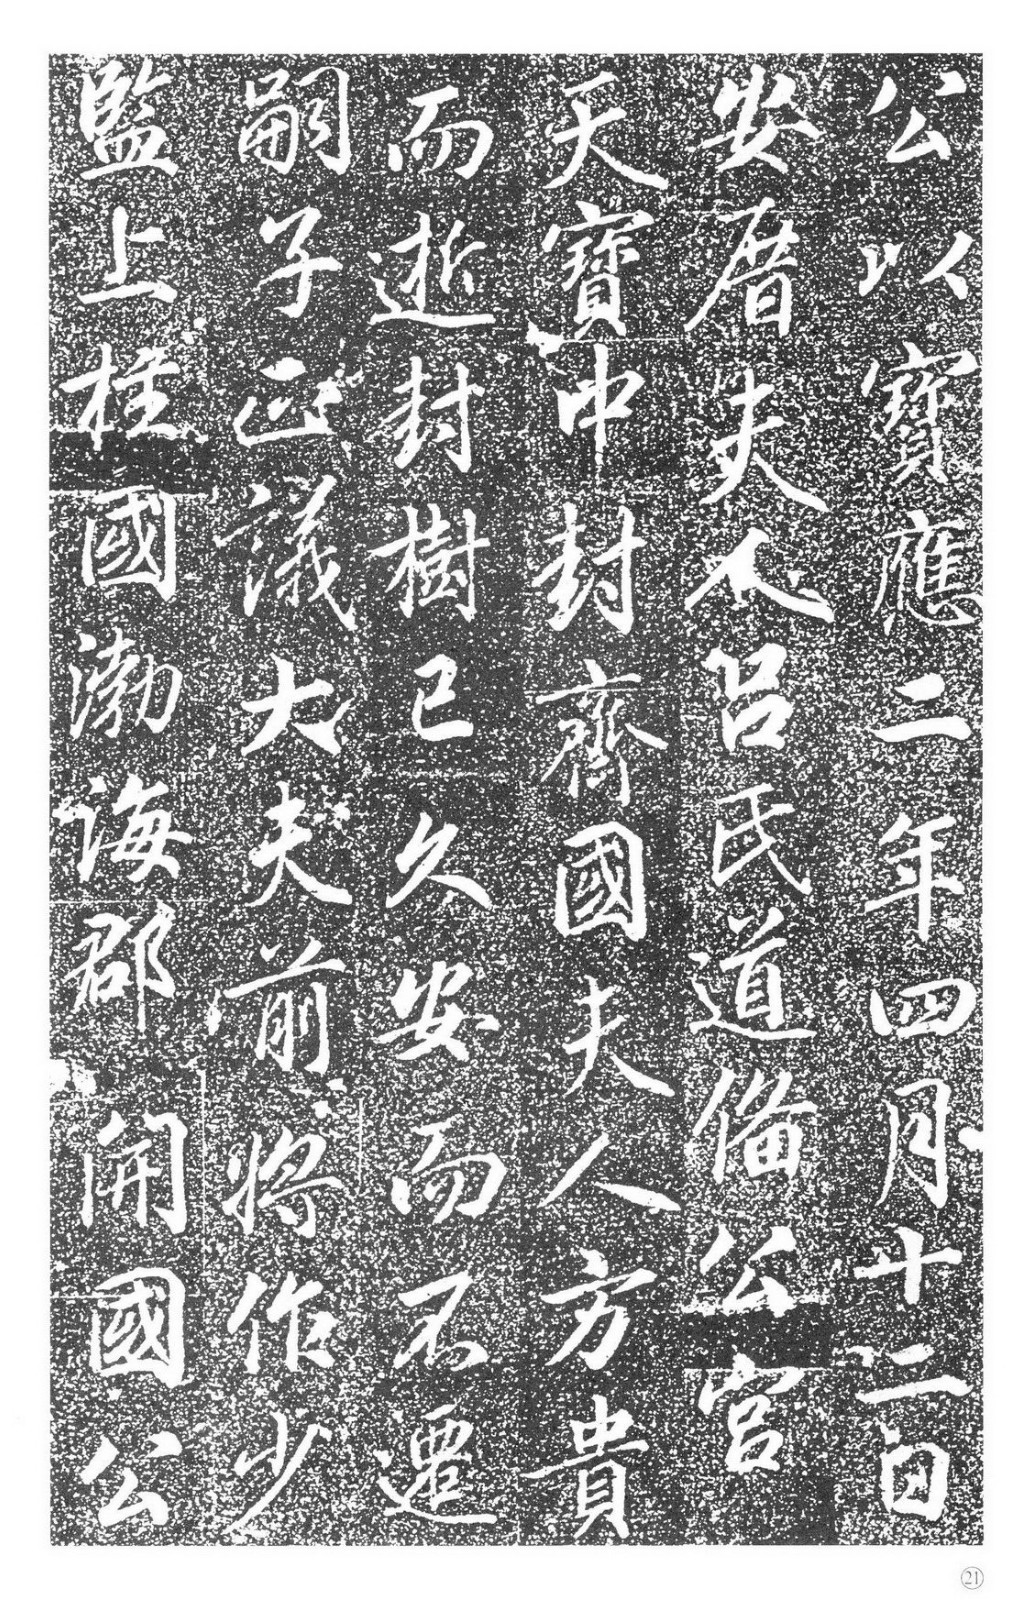 公以寶應二年四月十二日
安厝夫人呂氏道備公宮
天寶中封齊國夫人方貴
而逝封樹已久安而不遷
嗣子正議大夫前將作少
監上柱國渤海郡開國公
㉑